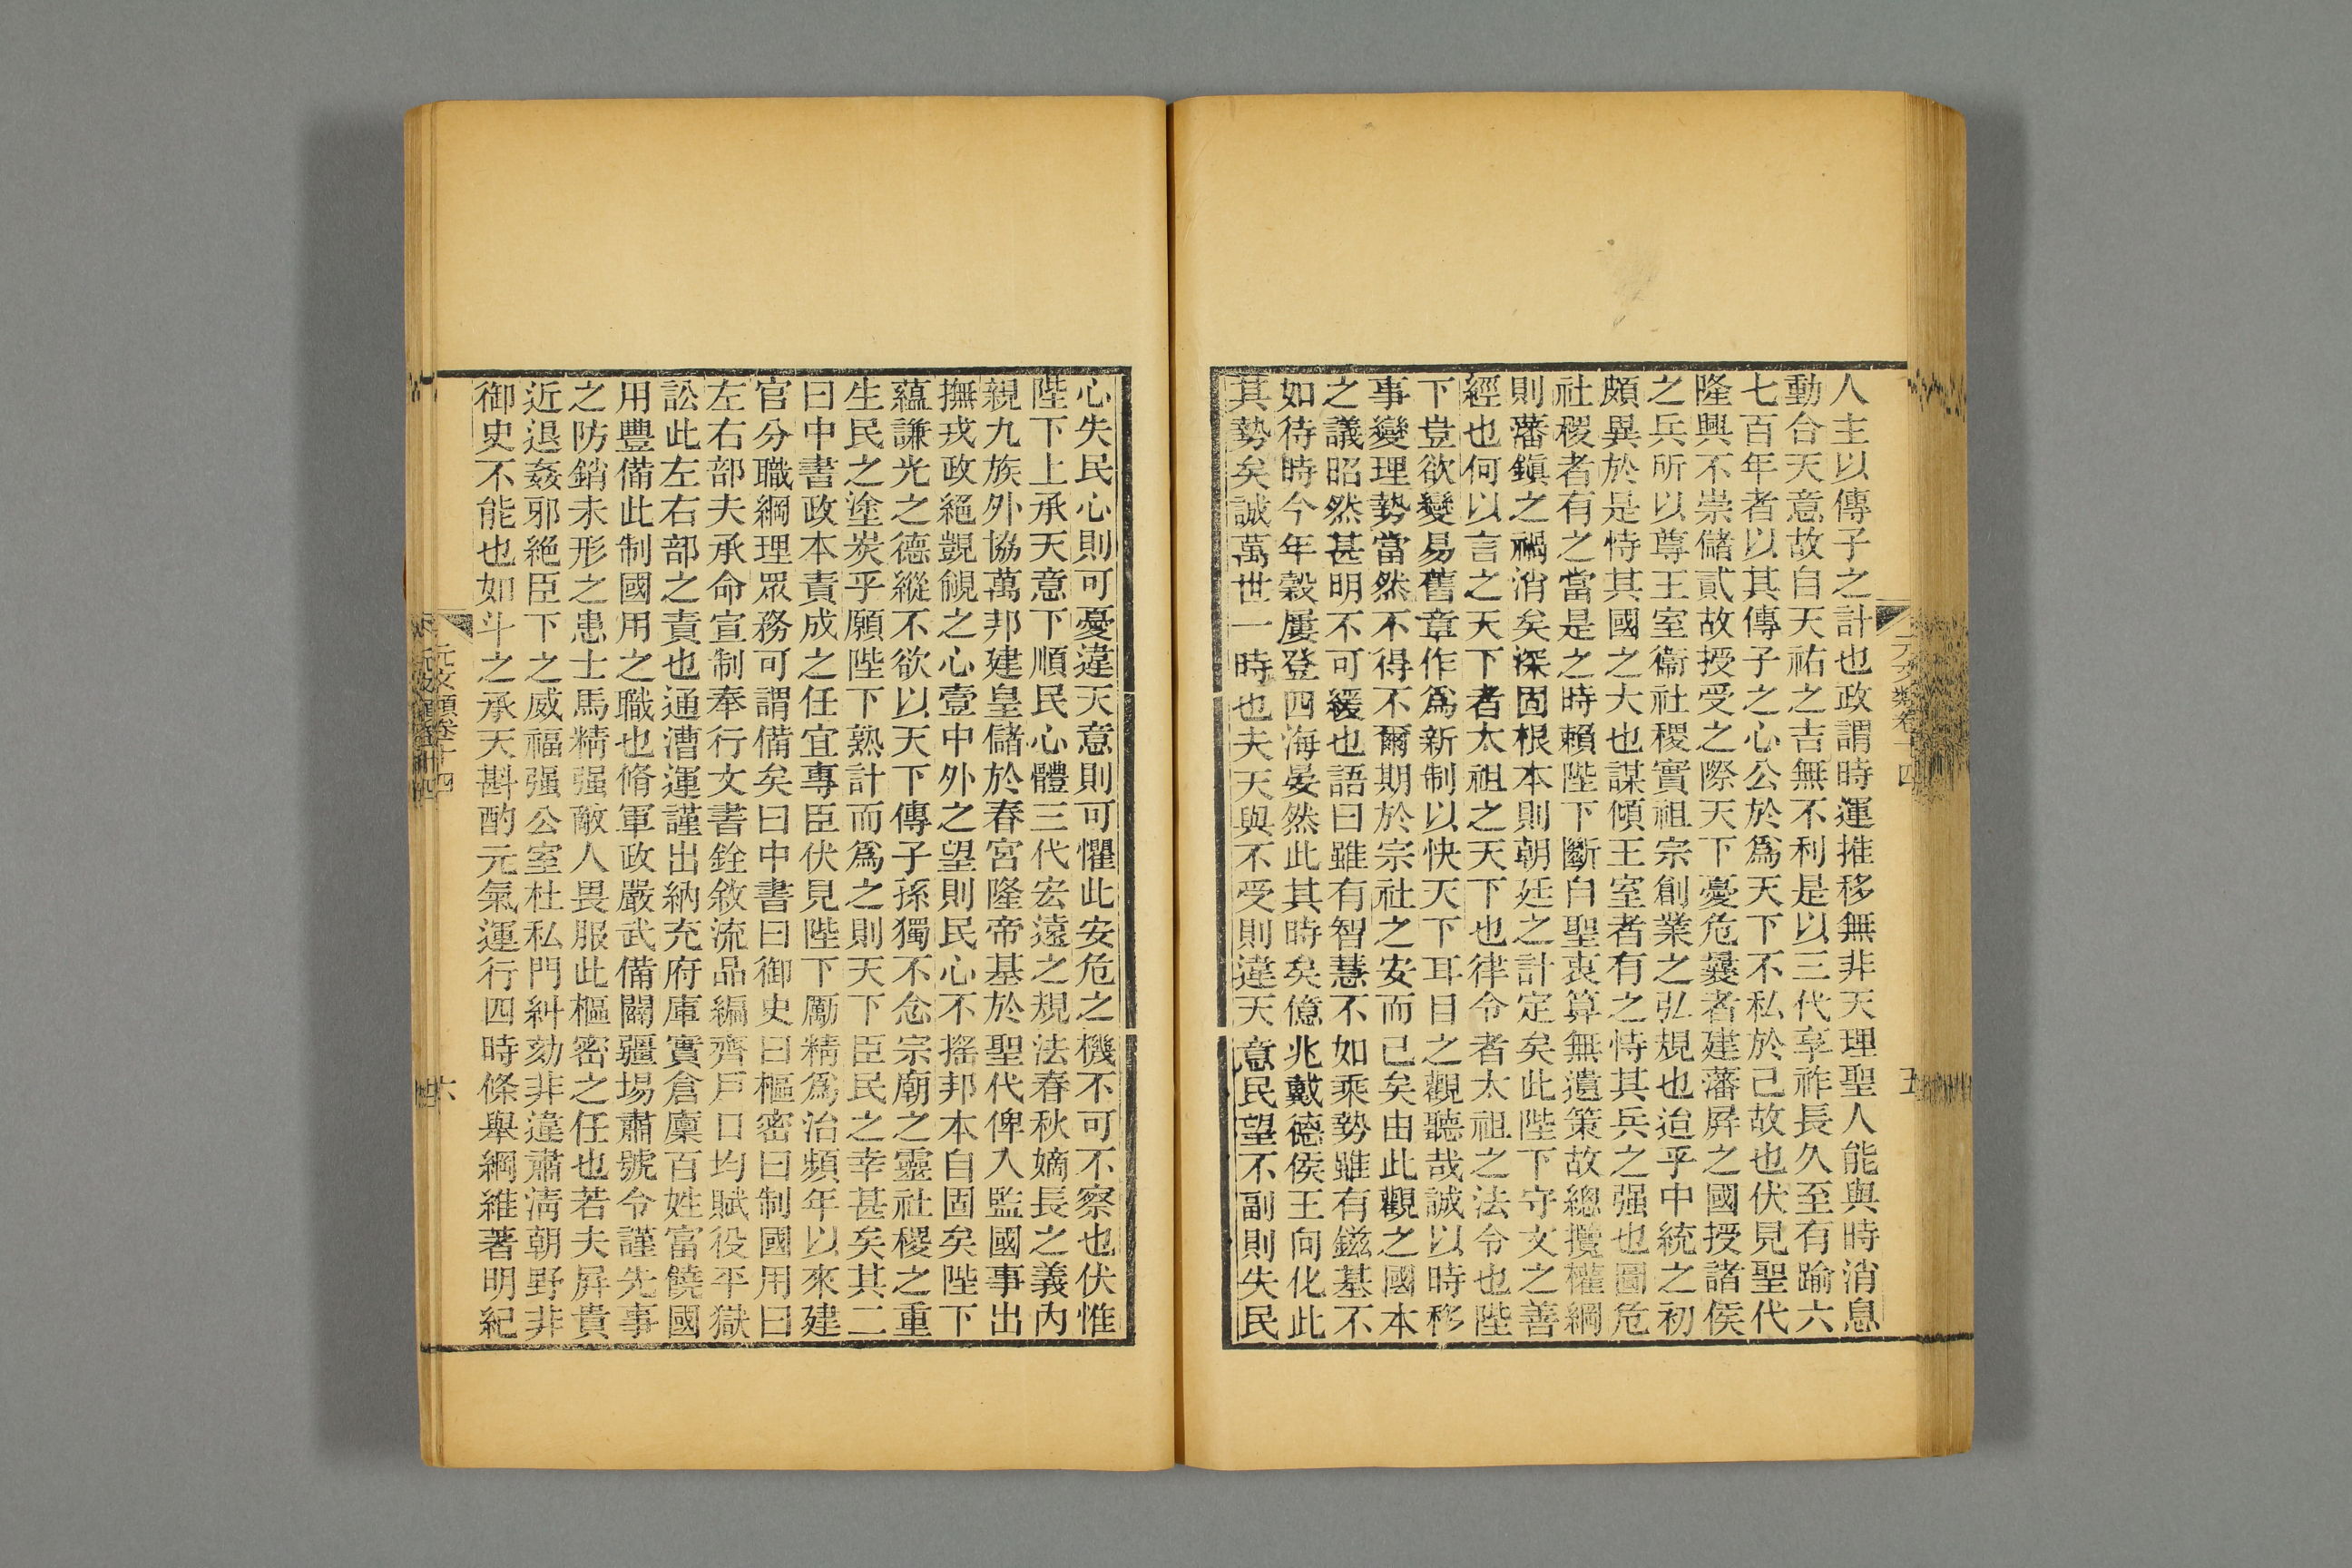 元文類卷十四
五
人主以傳子之計也政謂時運推移無非天理聖人能與時消息
動合天意故自天祐之吉無不利是以三代享祚長久至有踰六
七百年者以其傳子之心公於爲天下不私於己故也伏見聖代
隆興不崇儲貳故授受之際天下憂危曩者建藩屛之國授諸侯
之兵所以尊王室衞社稷實祖宗創業之弘規也迨乎中統之初
頗異於是恃其國之大也謀傾王室者有之恃其兵之强也圖危
社稷者有之當是之時賴陛下斷自聖衷算無遺策故總攬權綱
則藩鎭之禍消矣深固根本則朝廷之計定矣此陛下守文之善
經也何以言之天下者太祖之天下也律令者太祖之法令也陛
下豈欲變易舊章作爲新制以快天下耳目之觀聽哉誠以時移
事變理勢當然不得不爾期於宗社之安而已矣由此觀之國本
之議昭然甚明不可緩也語曰雖有智慧不如乘勢雖有鎡基不
如待時今年穀屢登四海晏然此其時矣億兆戴德侯王向化此
其勢矣誠萬世一時也夫天與不受則違天意民望不副則失民
心失民心則可憂違天意則可懼此安危之機不可不察也伏惟
陛下上承天意下順民心體三代宏遠之規法春秋嫡長之義內
親九族外協萬邦建皇儲於春宮隆帝基於聖代俾入監國事出
撫戎政絕覬覦之心壹中外之望則民心不搖邦本自固矣陛下
蘊謙光之德縱不欲以天下傳子孫獨不念宗廟之靈社稷之重
生民之塗炭乎願陛下熟計而爲之則天下臣民之幸甚矣其二
曰中書政本責成之任宜專臣伏見陛下勵精爲治頻年以來建
官分職綱理眾務可謂備矣曰中書曰御史曰樞密曰制國用曰
左右部夫承命宣制奉行文書銓敘流品編齊戶口均賦役平獄
訟此左右部之責也通漕運謹出納充府庫實倉廩百姓富饒國
用豐備此制國用之職也脩軍政嚴武備闢疆埸肅號令謹先事
之防銷未形之患士馬精强敵人畏服此樞密之任也若夫屛貴
近退姦邪絶臣下之威福强公室杜私門糾劾非違肅淸朝野非
御史不能也如斗之承天斟酌元氣運行四時條舉綱維著明紀
元文類卷十四
六